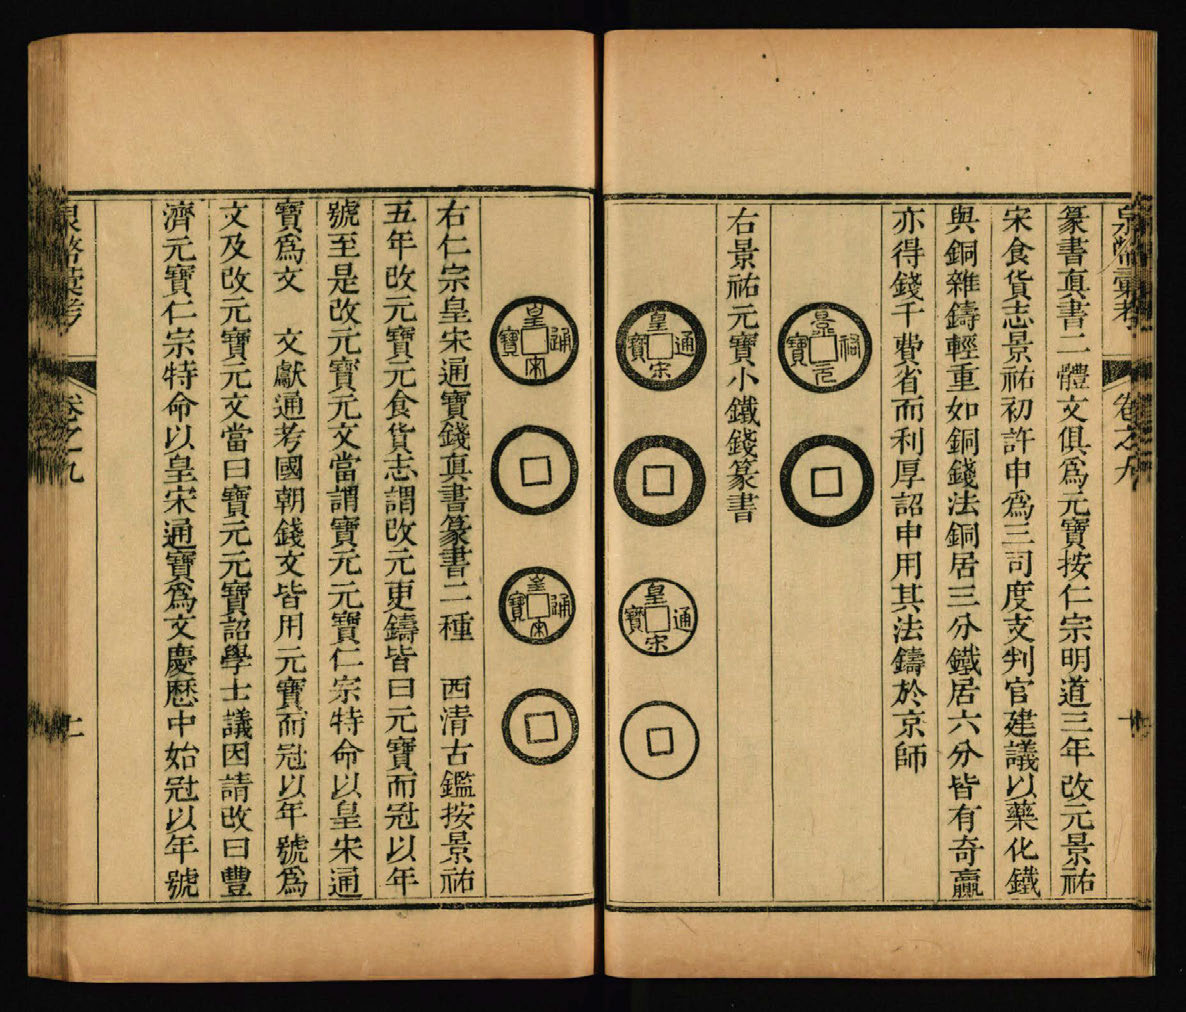 泉幣彙考 卷之九 十
篆書真書二體文俱爲元寶按仁宗明道三年改元景祐
宋食貨志景祐初許申爲三司度支判官建議以藥化鐵
與銅雜鑄輕重如銅錢法銅居三分鐵居六分皆有奇贏
亦得錢千費省而利厚詔申用其法鑄於京師
景祐元寶
右景祐元寶小鐵錢篆書
皇宋通寶
皇宋通寶
皇宋通寶
皇宋通寶
右仁宗皇宋通寶錢真書篆書二種　西清古鑑按景祐
五年改元寶元食貨志謂改元更鑄皆曰元寶而冠以年
號至是改元寶元文當謂寶元元寶仁宗特命以皇宋通
寶爲文　文獻通考國朝錢文皆用元寶而冠以年號爲
文及改元寶元文當曰寶元元寶詔學士議因請改曰豐
濟元寶仁宗特命以皇宋通寶爲文慶歷中始冠以年號
泉幣彙考 卷之九